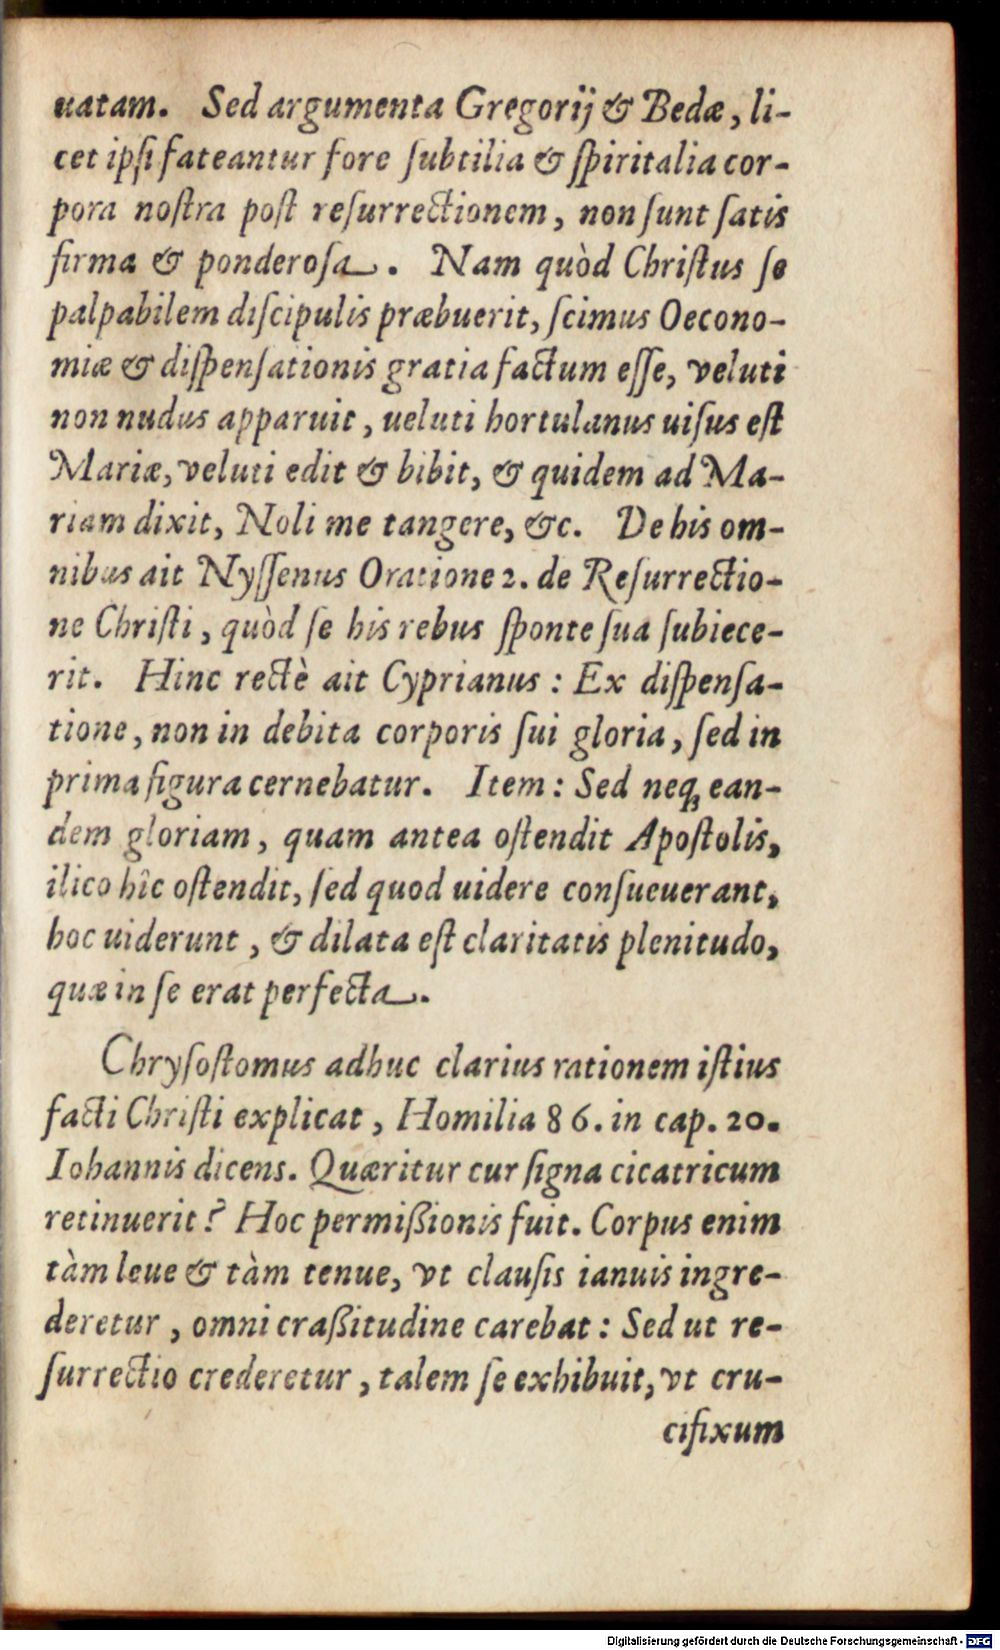 uatam. Sed argumenta Gregorij & Bedæ, li-
cet ipsi fateantur fore ſubtilia & ſpiritalia cor-
pora noſtra poſt reſurrectionem, non ſunt ſatis
firma & ponderoſa. Nam quòd Chriſtus ſe
palpabilem diſcipulis præbuerit, ſcimus Oecono-
miæ & diſpenſationis gratia factum eſſe, veluti
non nudus apparuit, ueluti hortulanus uiſus eſt
Mariæ, veluti edit & bibit, & quidem ad Ma-
riam dixit, Noli me tangere, &c. De his om-
nibus ait Nyſſenus Oratione 2. de Reſurrectio-
ne Chriſti, quòd ſe his rebus ſponte ſua ſubiece-
rit. Hinc rectè ait Cyprianus: Ex diſpenſa-
tione, non in debita corporis ſui gloria, ſed in
prima figura cernebatur. Item: Sed neq; ean-
dem gloriam, quam antea oſtendit Apoſtolis,
ilico hîc oſtendit, ſed quod uidere conſueuerant,
hoc uiderunt, & dilata eſt claritatis plenitudo,
quæ in ſe erat perfecta.
Chryſoſtomus adhuc clarius rationem iſtius
facti Chriſti explicat, Homilia 86. in cap. 20.
Iohannis dicens. Quæritur cur ſigna cicatricum
retinuerit? Hoc permißionis fuit. Corpus enim
tàm leue & tàm tenue, vt clauſis ianuis ingre-
deretur, omni craßitudine carebat: Sed ut re-
ſurrectio crederetur, talem ſe exhibuit, vt cru-
cifixum
Digitalisierung gefördert durch die Deutsche Forschungsgemeinschaft - DFG